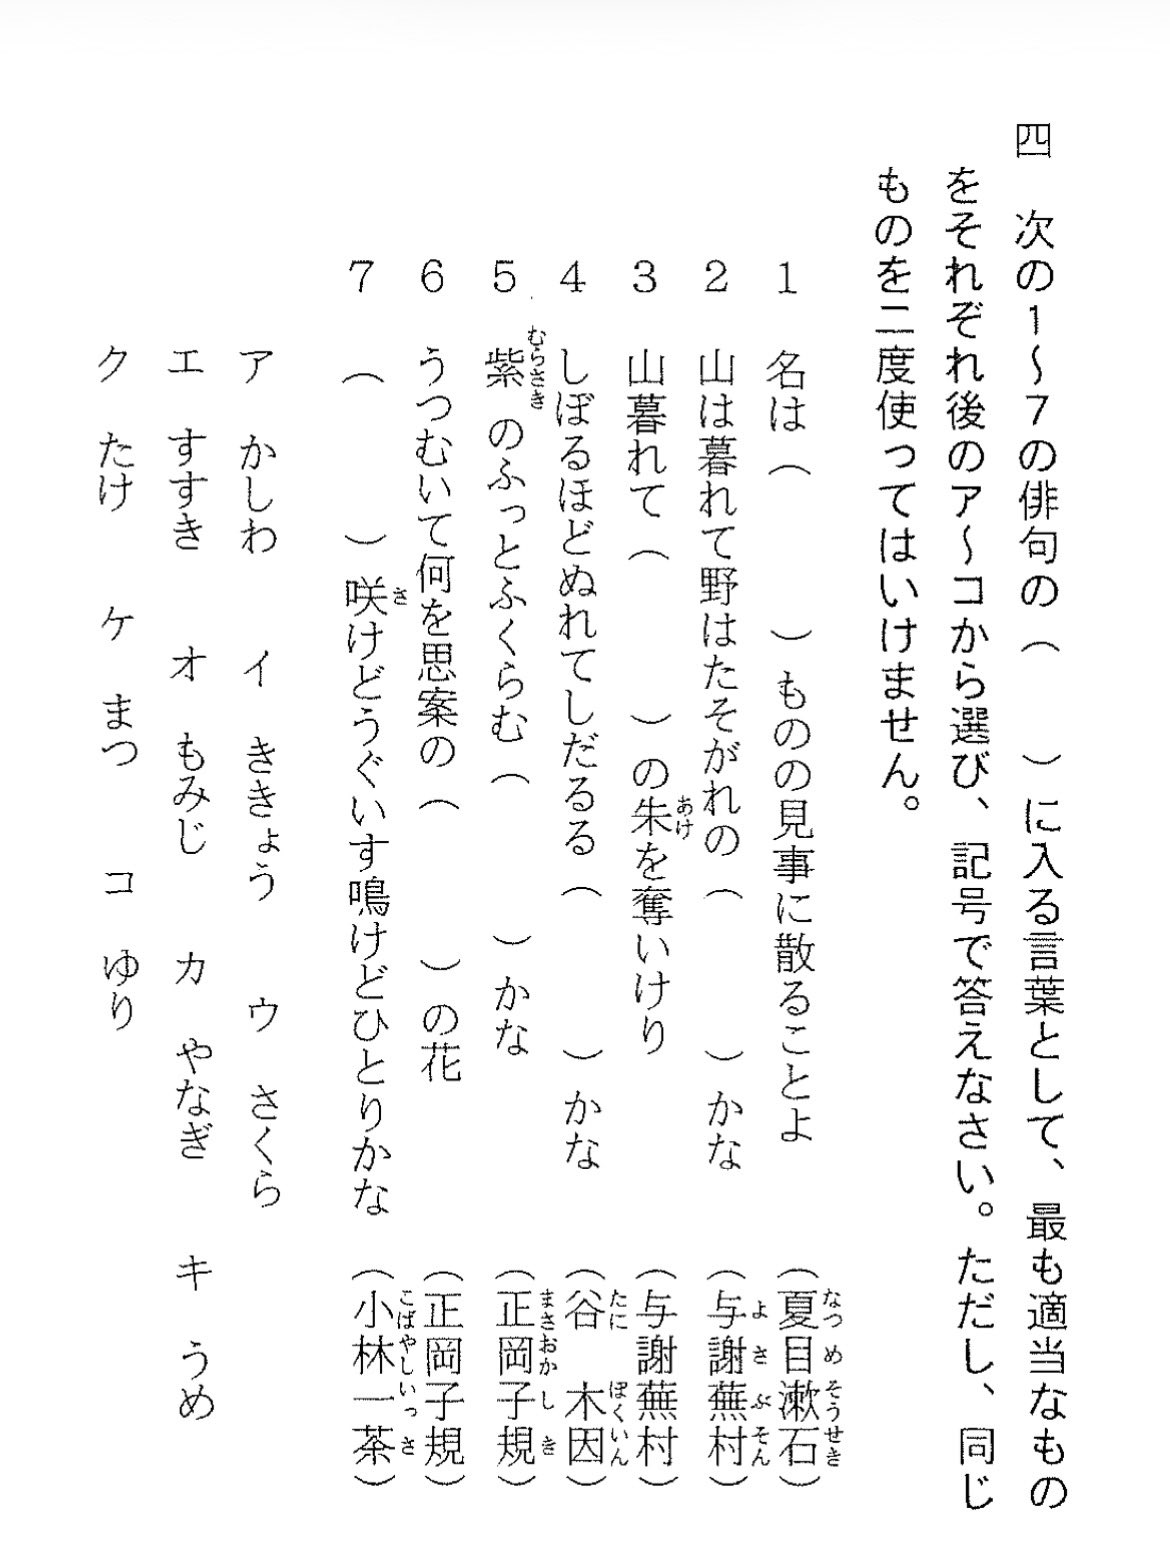 四 次の1～7の俳句の（　　）に入る言葉として、最も適当なもの
をそれぞれ後のア～コから選び、記号で答えなさい。ただし、同じ
ものを二度使ってはいけません。
1 名は（　　）ものの見事に散ることよ （夏目漱石）
なつめそうせき
2 山は暮れて野はたそがれの（　　）かな （与謝蕪村）
よさぶそん
3 山暮れて（　　）の朱を奪いけり （与謝蕪村）
あけ
4 しぼるほどぬれてしだるる（　　）かな （谷 木因）
たに ぼくいん
5 紫のふっとふくらむ（　　）かな （正岡子規）
むらさき まさおかしき
6 うつむいて何を思案の（　　）の花 （正岡子規）
7 （　　）咲けどうぐいす鳴けどひとりかな （小林一茶）
さ こばやしいっさ
ア かしわ イ ききょう ウ さくら
エ すすき オ もみじ カ やなぎ キ うめ
ク たけ ケ まつ コ ゆり